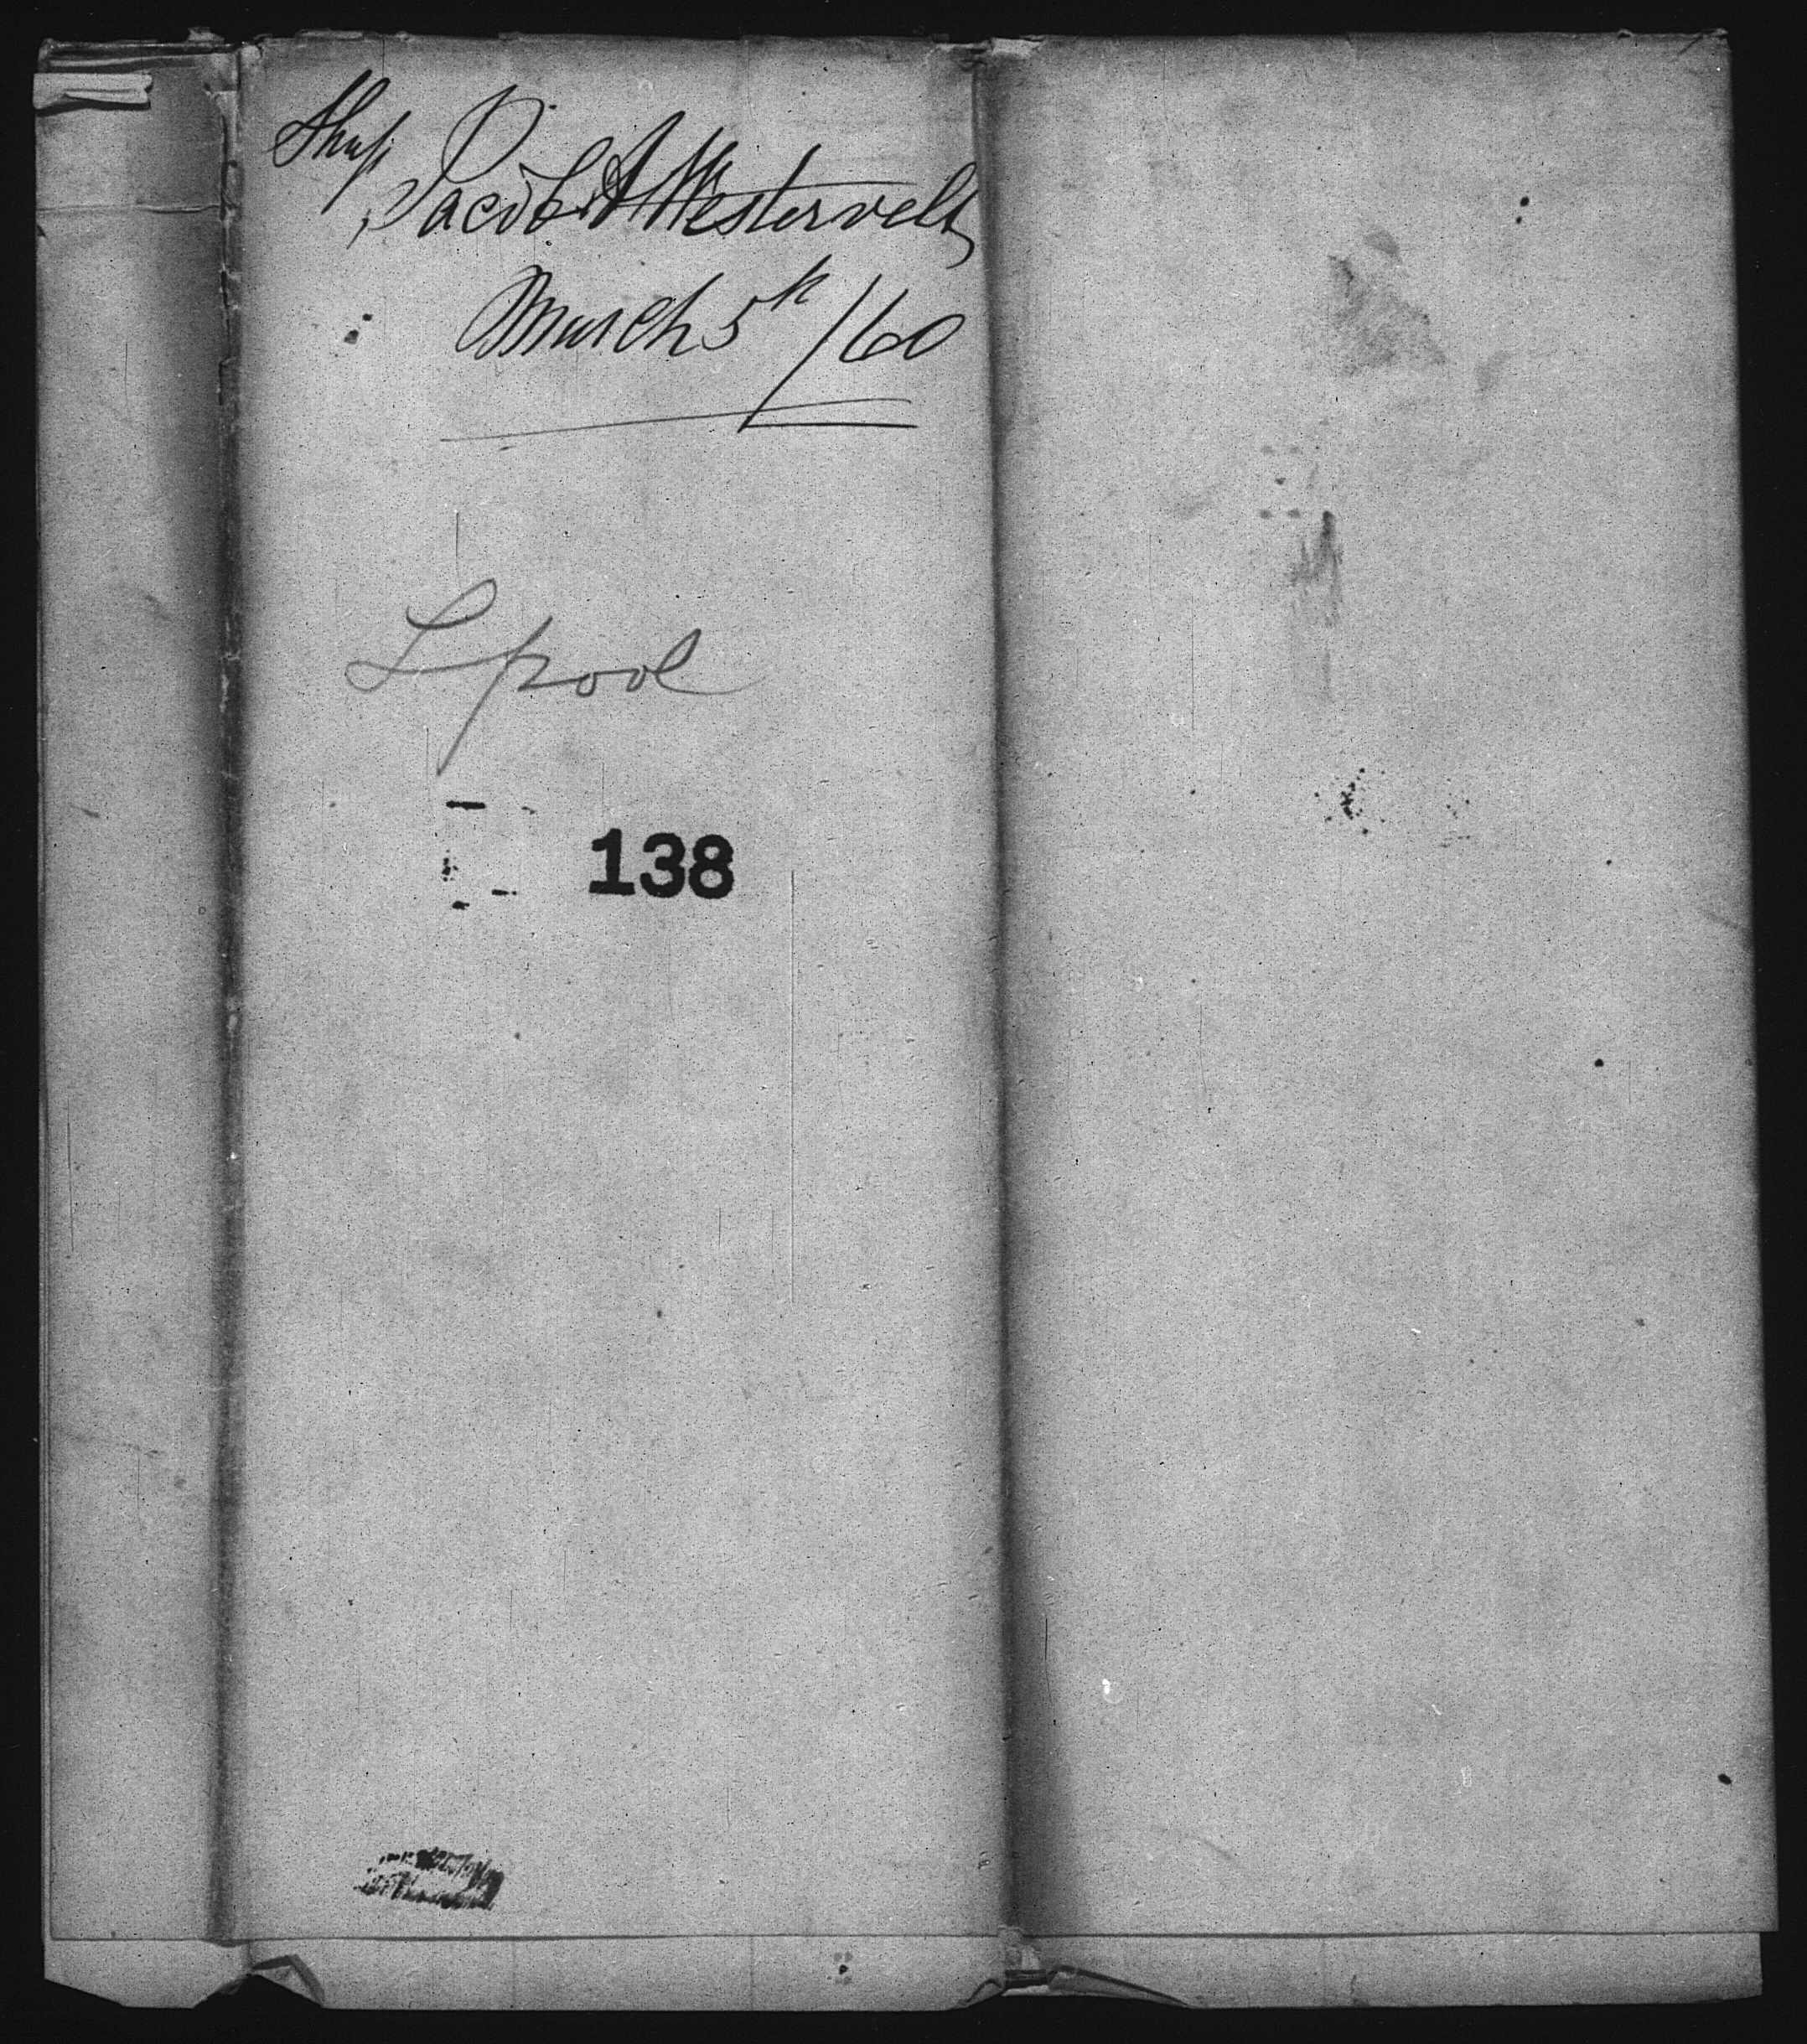 Ship
Jacob A Westervelt
March 5th /60
Lpool
138